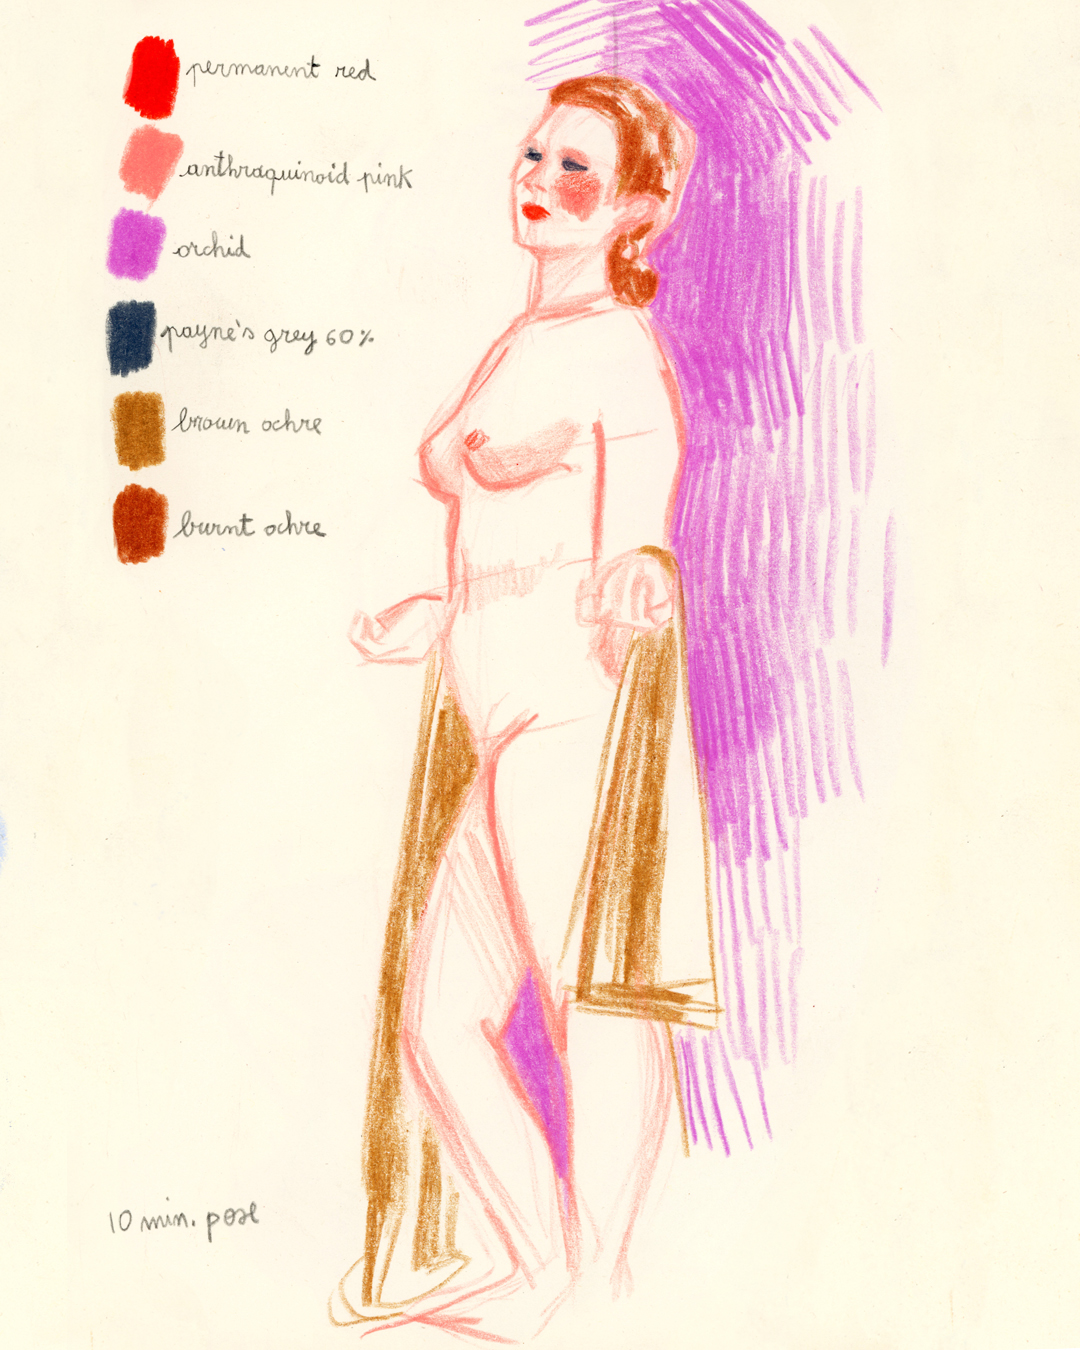 permanent red
anthraquinoid pink
orchid
payne's grey 60%
brown ochre
burnt ochre
10 min. pose